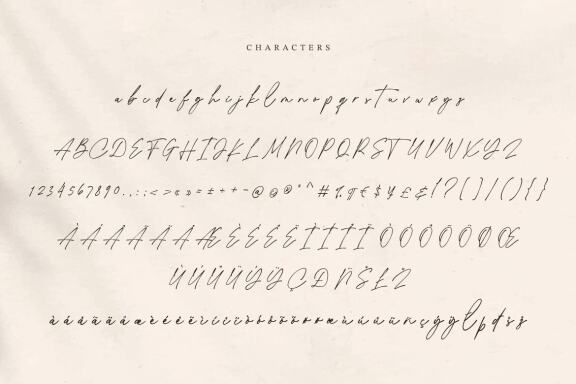 CHARACTERS
a b c d e f g h i j k l m n o p q r s t u v w x y z
A B C D E F G H I J K L M N O P Q R S T U V W X Y Z
1 2 3 4 5 6 7 8 9 0 . , : ; < > « » = ± + - @ # % ¶ € $ ¥ £ & ! ? [ ] / ( ) { }
À Á Â Ã Ä Å Æ È É Ê Ë Ì Í Î Ï Ò Ó Ô Õ Ö Ø Œ
Ù Ú Û Ü Ý Ÿ Ç Ð Ñ Š Ł Ž
à á â ã ä å æ è é ê ë ì í î ï ò ó ô õ ö ø œ ù ú û ü ñ ç ý ÿ ł þ đ š ž